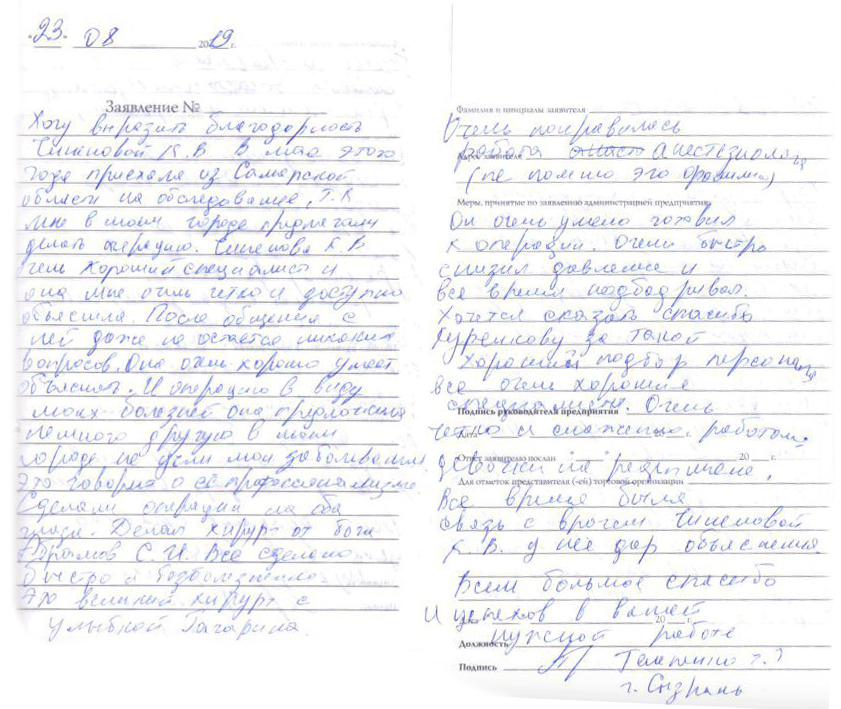 "23" 08 2019 г.
Заявление №
Хочу выразить благодарность
Чиненовой К.В. В мае этого
года приехала из Самарской
области на обследование, т.к
мне в моем городе предлагали
делать операцию. Чиненова К.В
очень хороший специалист и
она мне очень четко и доступно
объяснила. После общения с
ней даже не остается никаких
вопросов. Она очень хорошо умеет
объяснять. И операцию в виду
моих болезней она предложила
немного другую в моем
городе не учли мои заболевания.
Это говорит о её профессионализме
Сделали операции на оба
глаза. Делал хирург от бога
Абрамов С.И. Все сделано
быстро и безболезненно
Это великий хирург с
улыбкой Гагарина.
Фамилия и инициалы заявителя
Очень понравилась
Адрес заявителя
работа анестезиолога
(не помню его фамилию)
Меры, принятые по заявлению администрацией предприятия
Он очень умело готовил
к операции. Очень быстро
снизил давление и
все время подбадривал.
Хочется сказать спасибо
Куренкову за такой
хороший подбор персонала
все очень хорошие
специалисты. Очень
Подпись руководителя предприятия
четко и слаженно работают
Дата
Ответ заявителю послан 20 г.
девочки на ресепшене,
Для отметок представителя (-ей) торговой организации
Все время была
связь с врачем Чиненовой
К.В. у нее дар объяснения.
Всем большое спасибо
и успехов в вашей
Дата 20 г.
нужной работе
Должность
Подпись
г. Сызрань